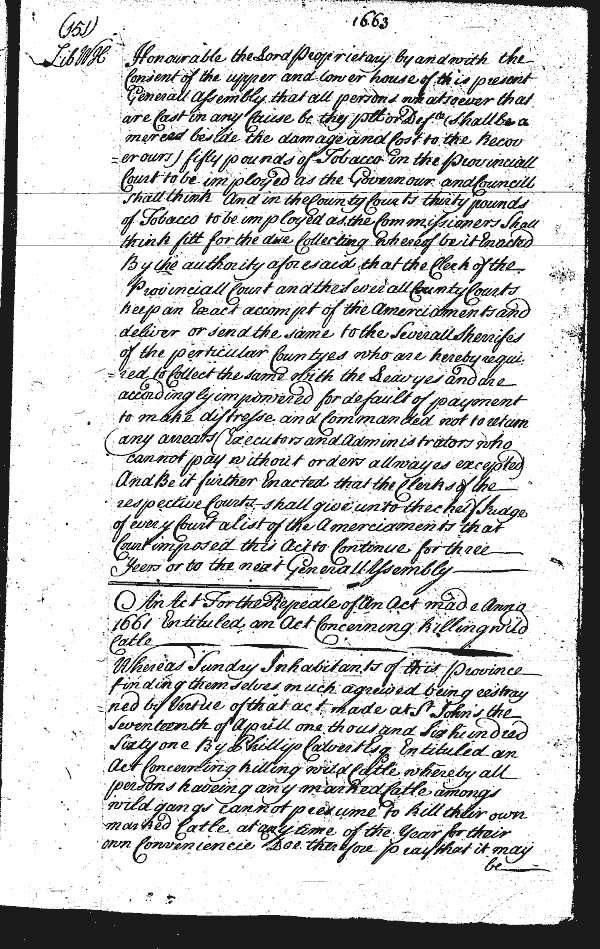 (151)
1663
Lib WH
Honourable the Lord Proprietary by and with the
Consent of the upper and lower house of this present
Generall Assembly that all persons whatsoever that
are Cast in any Cause be they pltf or Defts (shall be a
merced beside the damage and Cost to the Recov
=erours) fifty pounds of Tobacco in the Provinciall
Court to be imployed as the Governour and Councill
shall think And in the County Courts thirty pounds
of Tobacco to be imployed as the Commissioners Shall
think fitt for the due Collecting whereof be it Enacted
By the authority aforesaid that the Clerk of the
Provinciall Court and the Severall County Courts
keep an Exact accompt of the Amerciaments and
deliver or send the same to the Severall Sherrifes
of the perticular Countyes who are hereby requi
=red to Collect the same with the Leavyes and are
accordingly impowered for default of payment
to make distresse and Commanded not to return
any arrears (Executors and Administrators who
cannot pay without orders allwayes excepted)
And Be it further Enacted that the Clerks of the
respective Courts shall give unto the cheif Judge
of every Court a list of the Amerciaments that
Court imposed this Act to Continue for three
Yeers or to the next Generall Assembly
An Act For the Repeale of An Act made Anno
1661 Entituled an Act Concerning killing wild
Catle
Whereas Sundry Inhabitants of this Province
finding themselves much agreived being restray
ned by Vertue of that act made at St John's the
Seventeenth of Aprill one thousand Six hundred
Sixty one By Phillip Calvert Esq Entituled an
Act Concerning killing wild Catle whereby all
persons haveing any marked Catle amongs
wild gangs cannot presume to kill their own
marked Catle at any time of the Year for their
own Conveniencie Doe therefore pray that it may
be